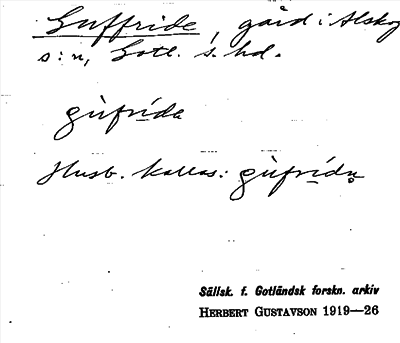 Guffride, gård i Alskog
s:n, Gotl. s. hd.
gùfrída
Husb. kallas: gùfrídu
Sällsk. f. Gotländsk forskn. arkiv
HERBERT GUSTAVSON 1919—26